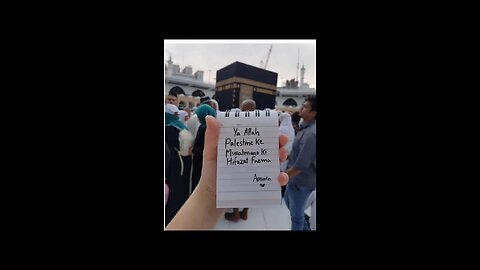 Ya Allah
Palestine Ke
Musalmano Ki
Hifazat Farma
Ameen